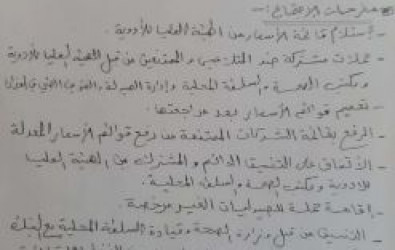 مخرجات الاجتماع :-
- إستلام قائمة الأسعار من الهيئة العليا للأدوية .
- حملات مشتركة عند المتلاعبين و الممتنعين من قبل الهيئة العليا للأدوية
ومكتب الصحة والسلطة المحلية وإدارة الصيدلة والتموين الطبي
- تعميم قوائم الأسعار بعد مراجعتها .
- الرفع بقائمة الشركات الممتنعة عن رفع قوائم الأسعار المعدلة
- الاتفاق على التنسيق الدائم و المشترك من الهيئة العليا
للادوية ومكتب الصحة والسلطة المحلية .
- إقامة حملة للصيدليات الغير مرخصة .
- التنسيق من قبل وزارة الصحة وقيادة السلطة المحلية مع البنك